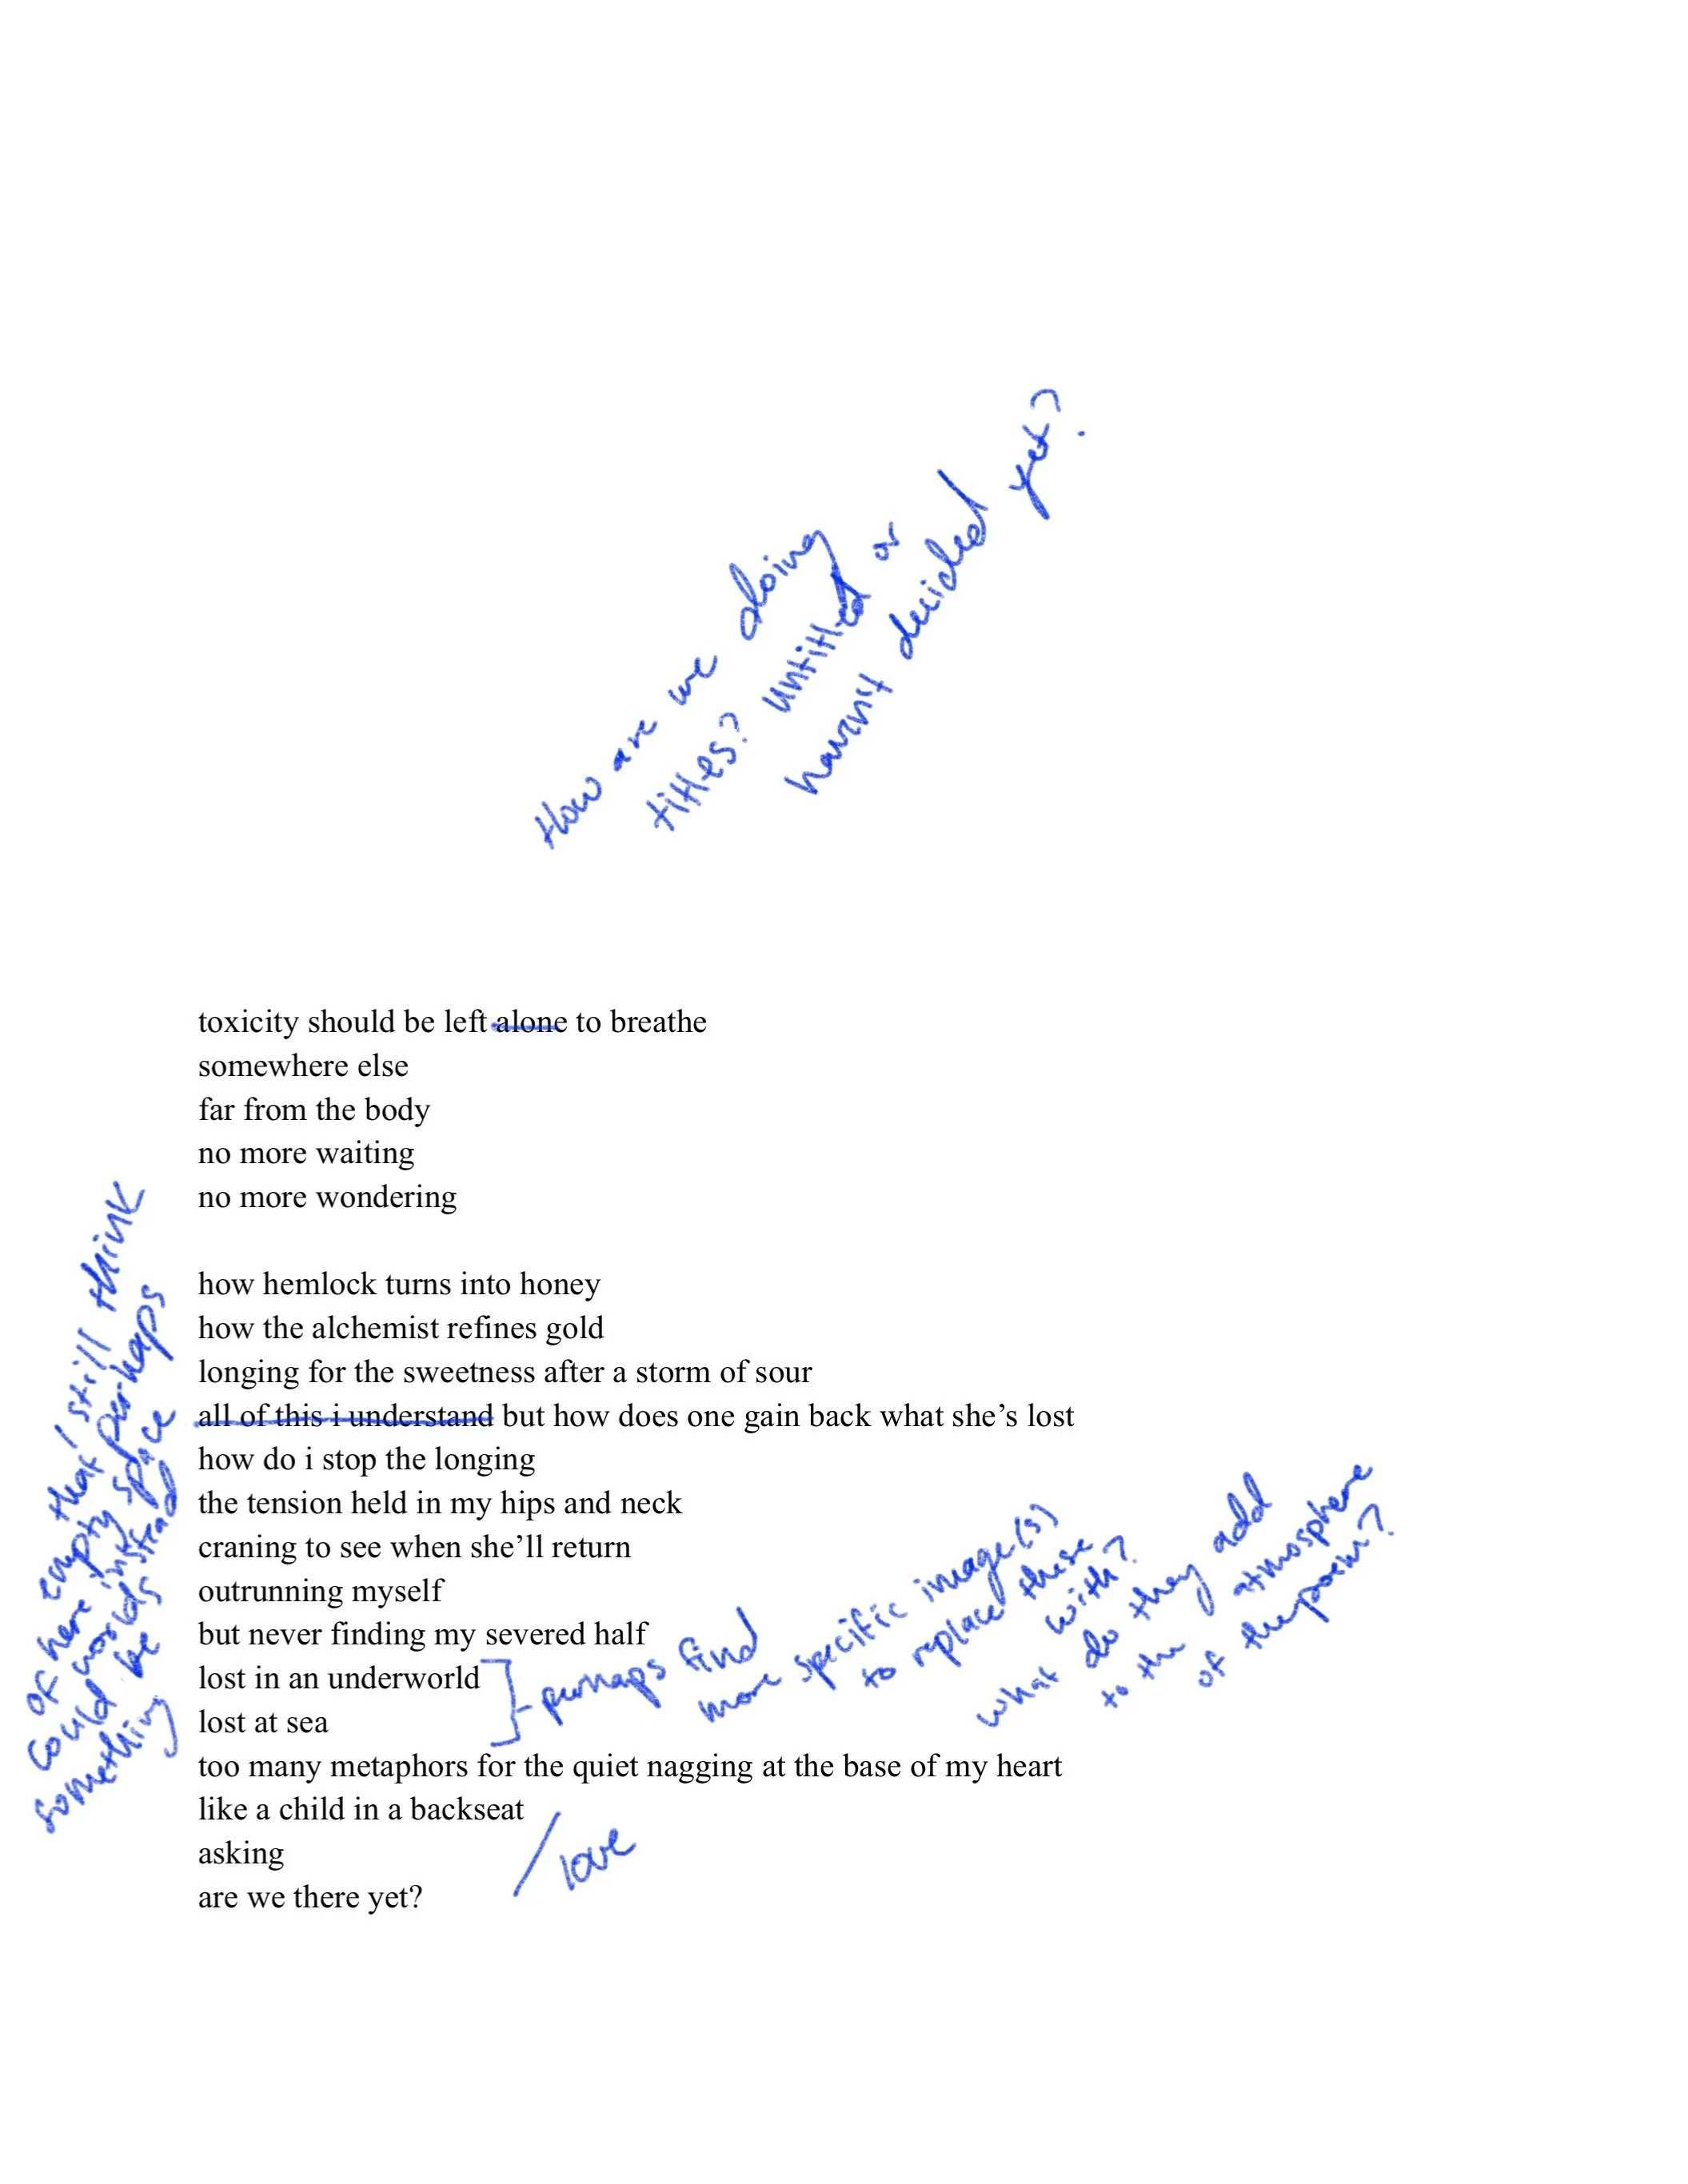 How are we doing
titles? Untitled or
haven't decided yet?
toxicity should be left alone to breathe
somewhere else
far from the body
no more waiting
no more wondering
how hemlock turns into honey
how the alchemist refines gold
longing for the sweetness after a storm of sour
all of this i understand but how does one gain back what she's lost
how do i stop the longing
the tension held in my hips and neck
craning to see when she'll return
outrunning myself
but never finding my severed half
lost in an underworld
lost at sea
too many metaphors for the quiet nagging at the base of my heart
like a child in a backseat
asking
are we there yet?
that I still think
empty perhaps
of here in space
could words instead
be
something
perhaps find
more specific image(s)
to replace these
with?
what do they add
to the atmosphere
of the poem?
love